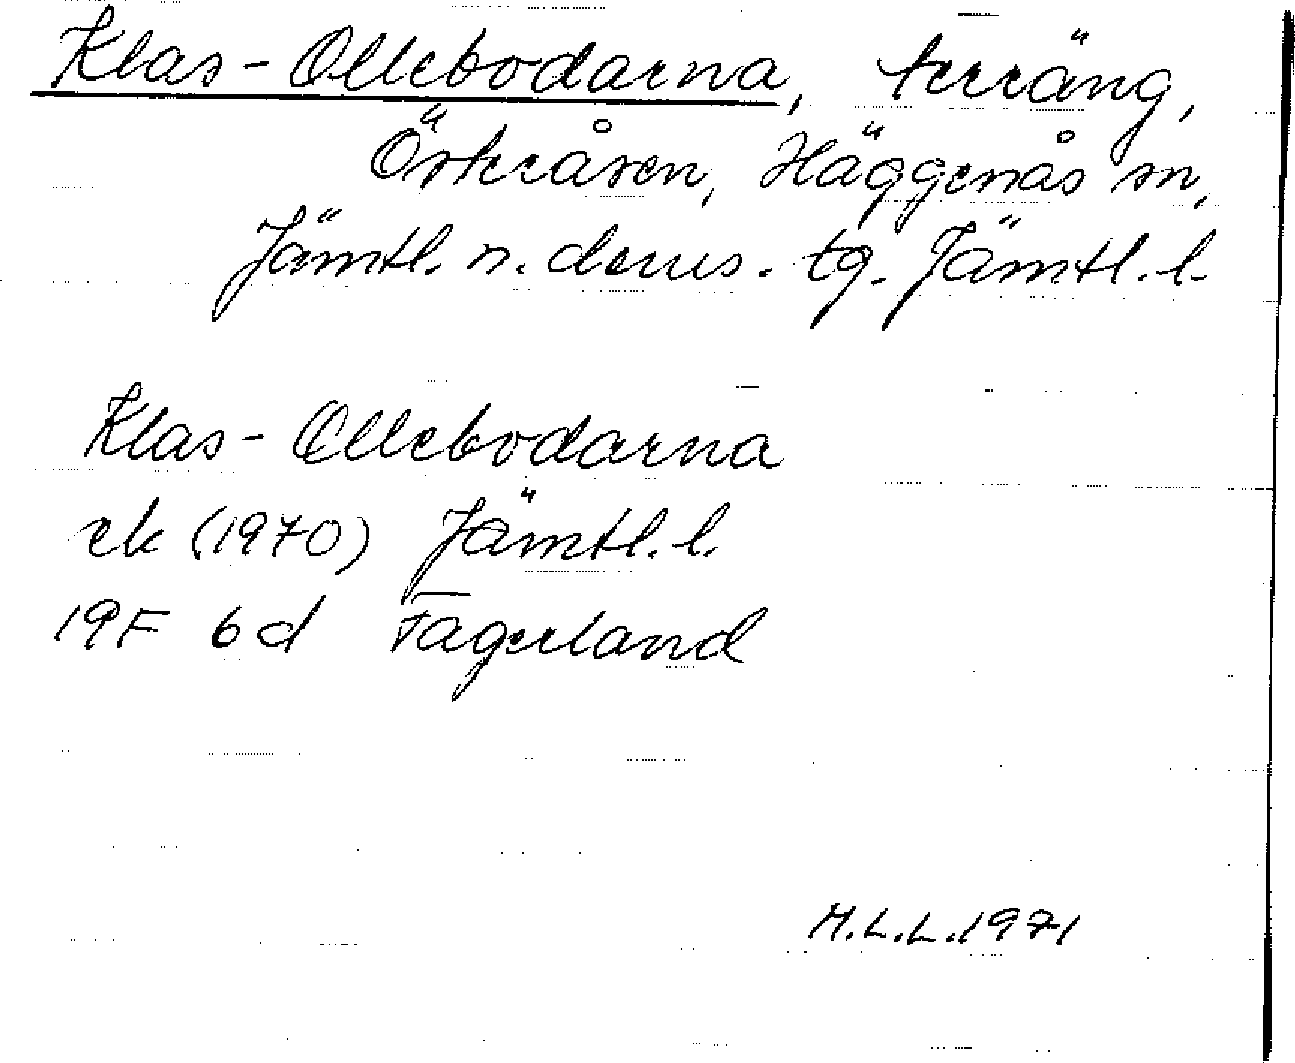 Klas-Ollebodarna, terräng,
Österåsen, Häggenås sn,
Jämtl. n. doms. tg. Jämtl. l.
Klas-Ollebodarna
ek (1970) Jämtl. l.
19F 6d Fagerland
M.L.L. 1971